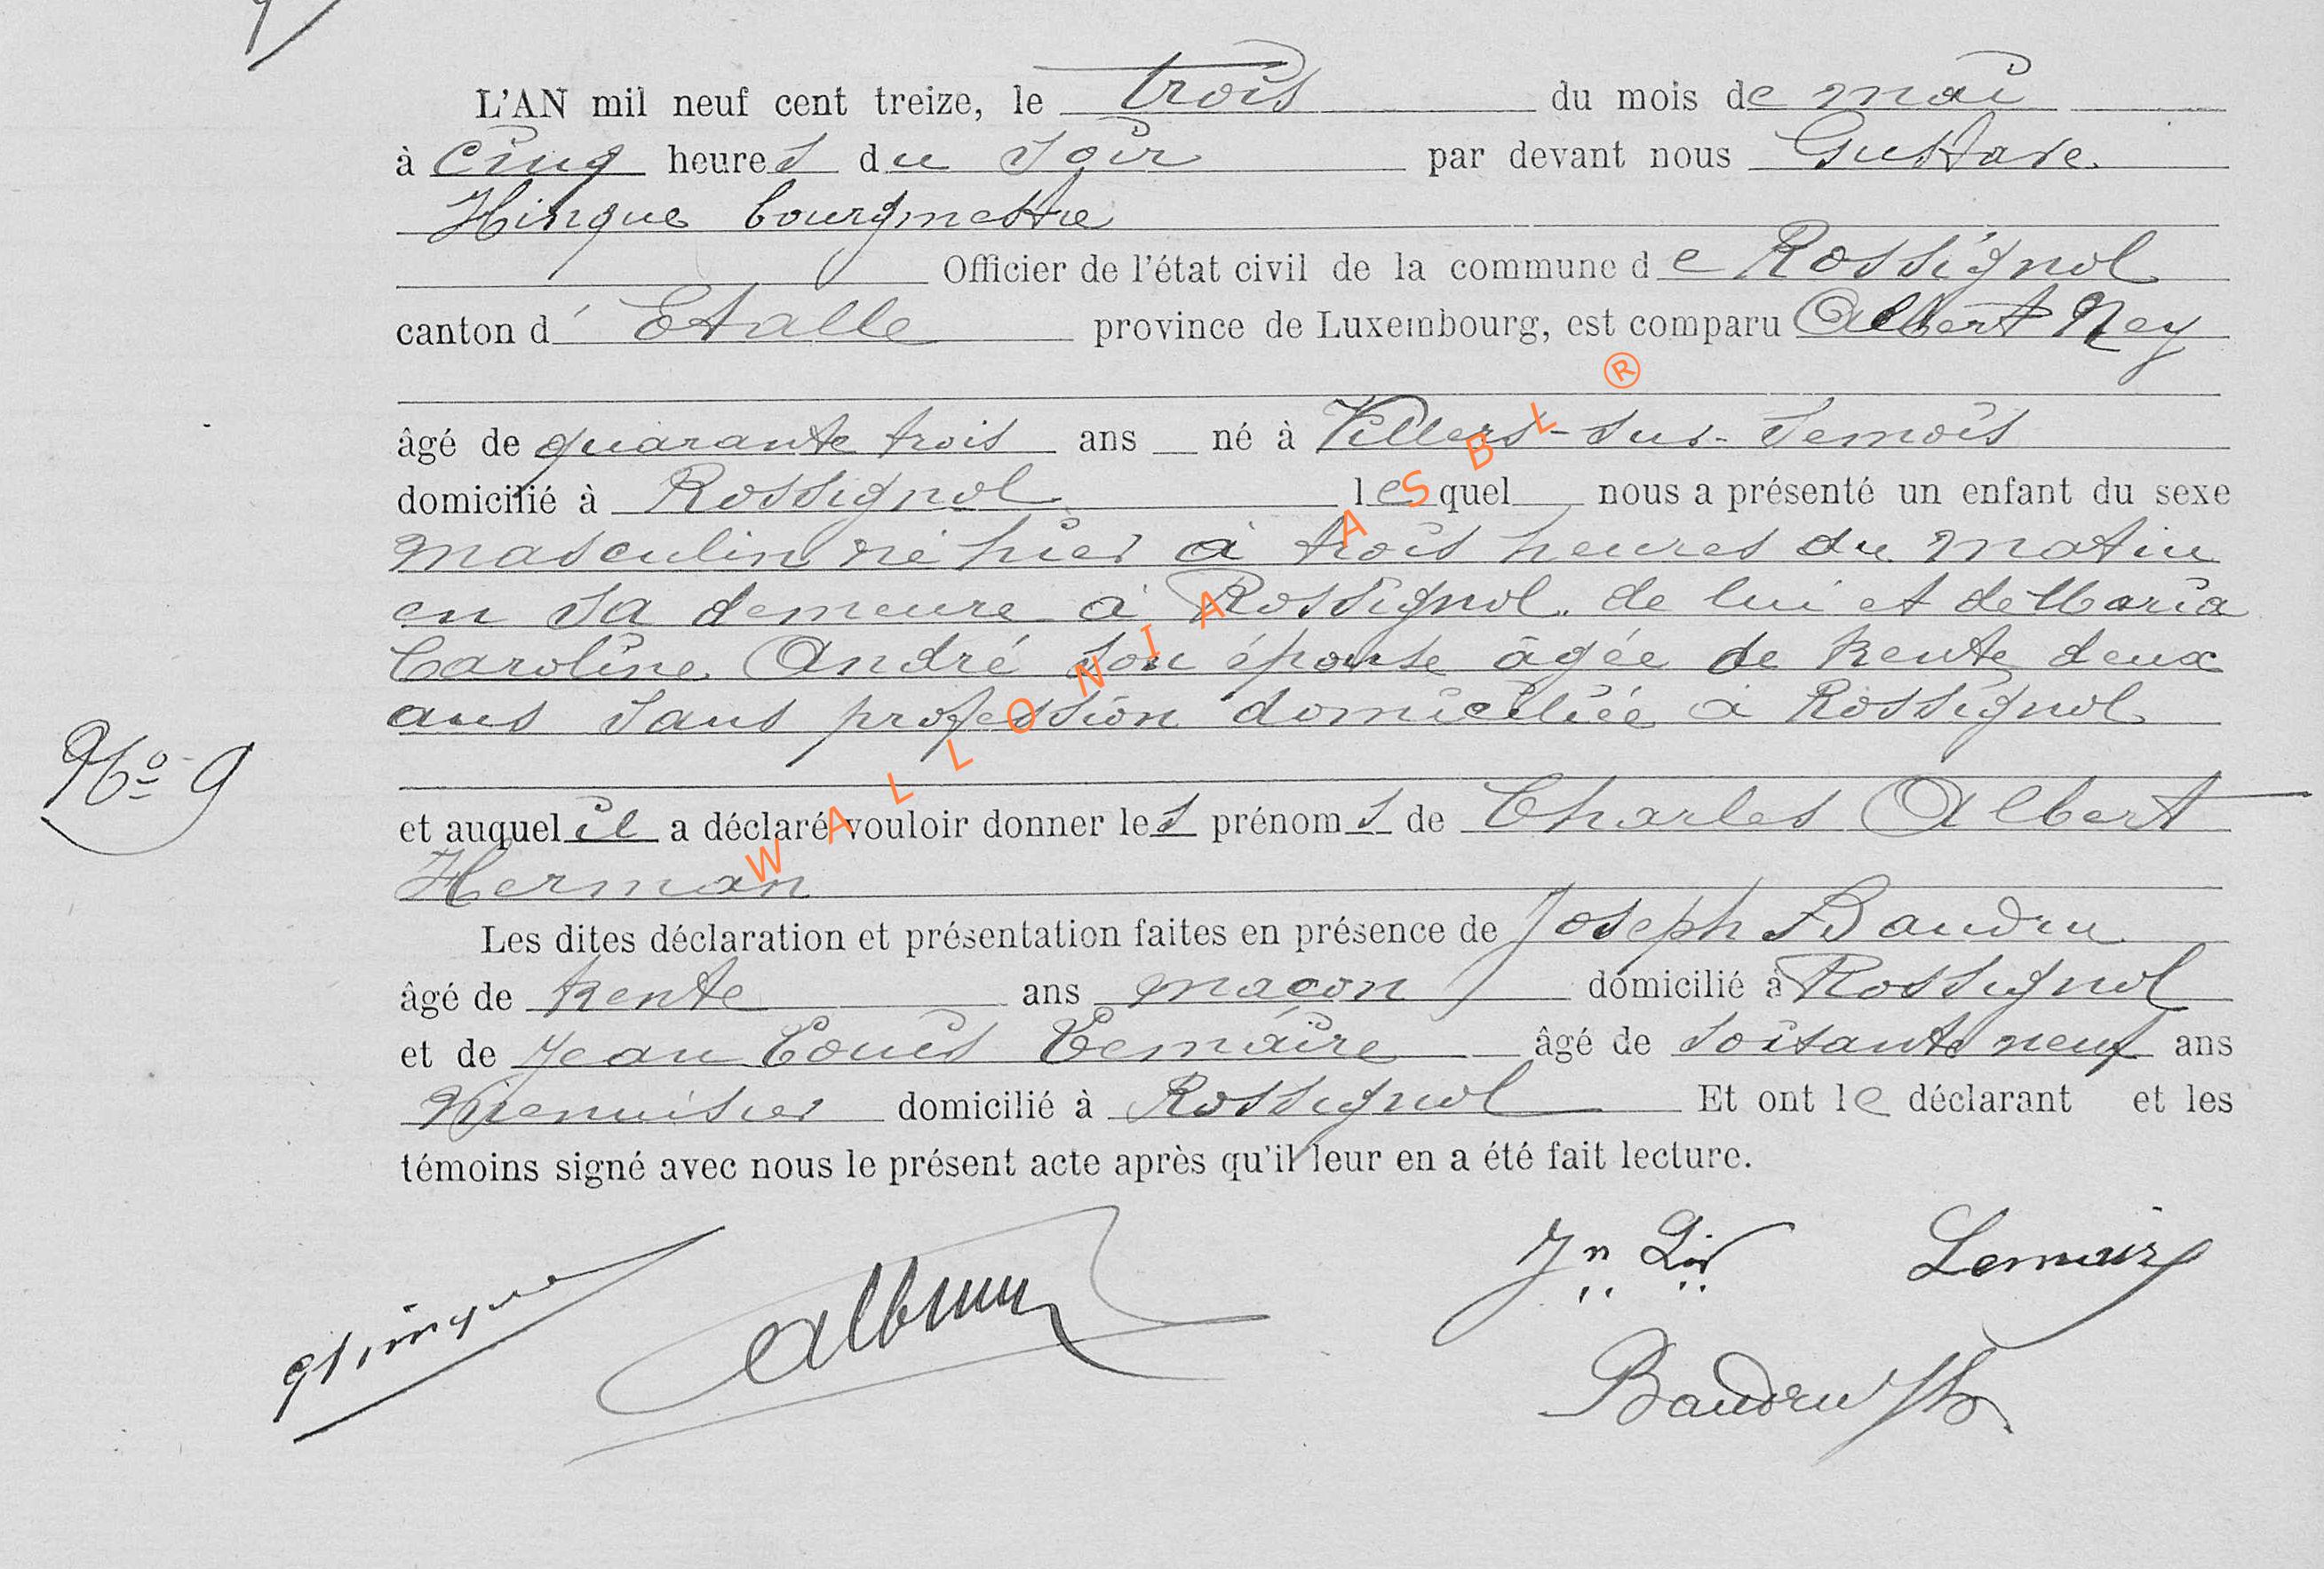 L'AN mil neuf cent treize, le trois du mois de mai
à cinq heures du soir par devant nous Gustave
Hinque bourgmestre
Officier de l'état civil de la commune de Rossignol
canton d'Etalle province de Luxembourg, est comparu Albert Ney
âgé de quarante trois ans né à Villers-sur-Semois
domicilié à Rossignol lequel nous a présenté un enfant du sexe
masculin né hier à trois heures du matin
en sa demeure à Rossignol de lui et de Maria
Caroline André son épouse âgée de trente deux
ans sans profession domiciliée à Rossignol
No 9
et auquel il a déclaré vouloir donner les prénoms de Charles Albert
Herman
Les dites déclaration et présentation faites en présence de Joseph Baudru
âgé de trente ans maçon domicilié à Rossignol
et de Jean Louis Lemaire âgé de soixante neuf ans
menuisier domicilié à Rossignol Et ont le déclarant et les
témoins signé avec nous le présent acte après qu'il leur en a été fait lecture.
Jn Ls Lemaire
GHinque
Baudru Jh
WALLONIA ASBL ®